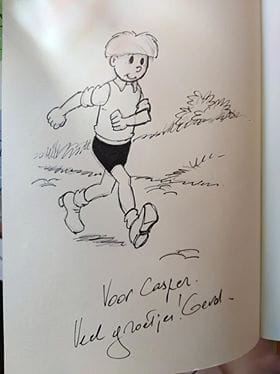 Voor Casper.
Veel groetjes! Gerd.